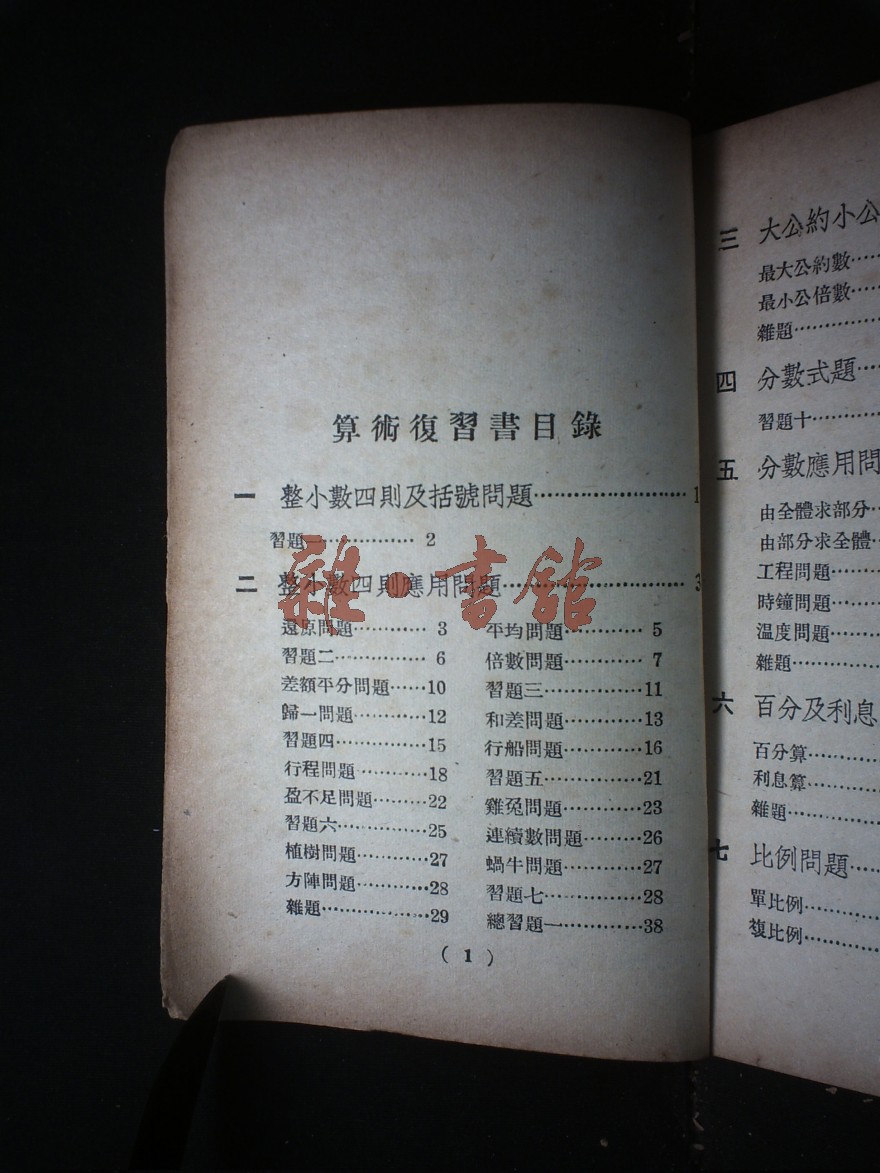 算術復習書目錄
一 整小數四則及括號問題……………………1
習題一……………2
二 整小數四則應用問題……………………3
還原問題…………3 平均問題…………5
習題二……………6 倍數問題…………7
差額平分問題……10 習題三……………11
歸一問題…………12 和差問題…………13
習題四……………15 行船問題…………16
行程問題…………18 習題五……………21
盈不足問題………22 雞兔問題…………23
習題六……………25 連續數問題………26
植樹問題…………27 蝸牛問題…………27
方陣問題…………28 習題七……………28
雜題………………29 總習題一…………38
(1)
三 大公約小公
最大公約數……
最小公倍數……
雜題……………
四 分數式題……
習題十…………
五 分數應用問
由全體求部分…
由部分求全體…
工程問題………
時鐘問題………
溫度問題………
雜題……………
六 百分及利息
百分算…………
利息算…………
雜題……………
七 比例問題……
單比例…………
複比例…………
雜·書館